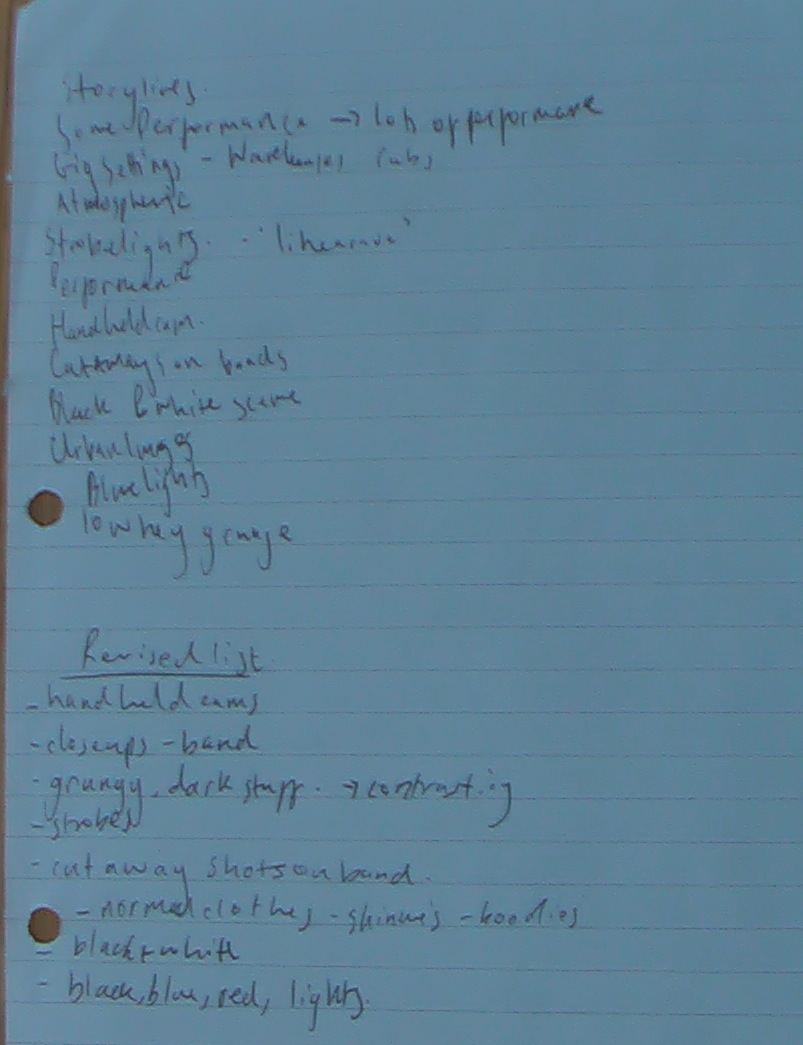 Storylines.
Some Performance → lots of performance
Gig settings - Warehouses, clubs
Atmospheric
Strobelights. - 'like a rave'
Performance
Handheld cam.
Cutaways on bands
Black & white scene
Urban
Blue lights
low key grunge
Revised list
- handheld cams
- closeups - band
- grungy, dark stuff. → contrasting
- strobes
- cut away shots on band.
- normal clothes - skinnies - hoodies
- black + white
- black, blue, red, lights.